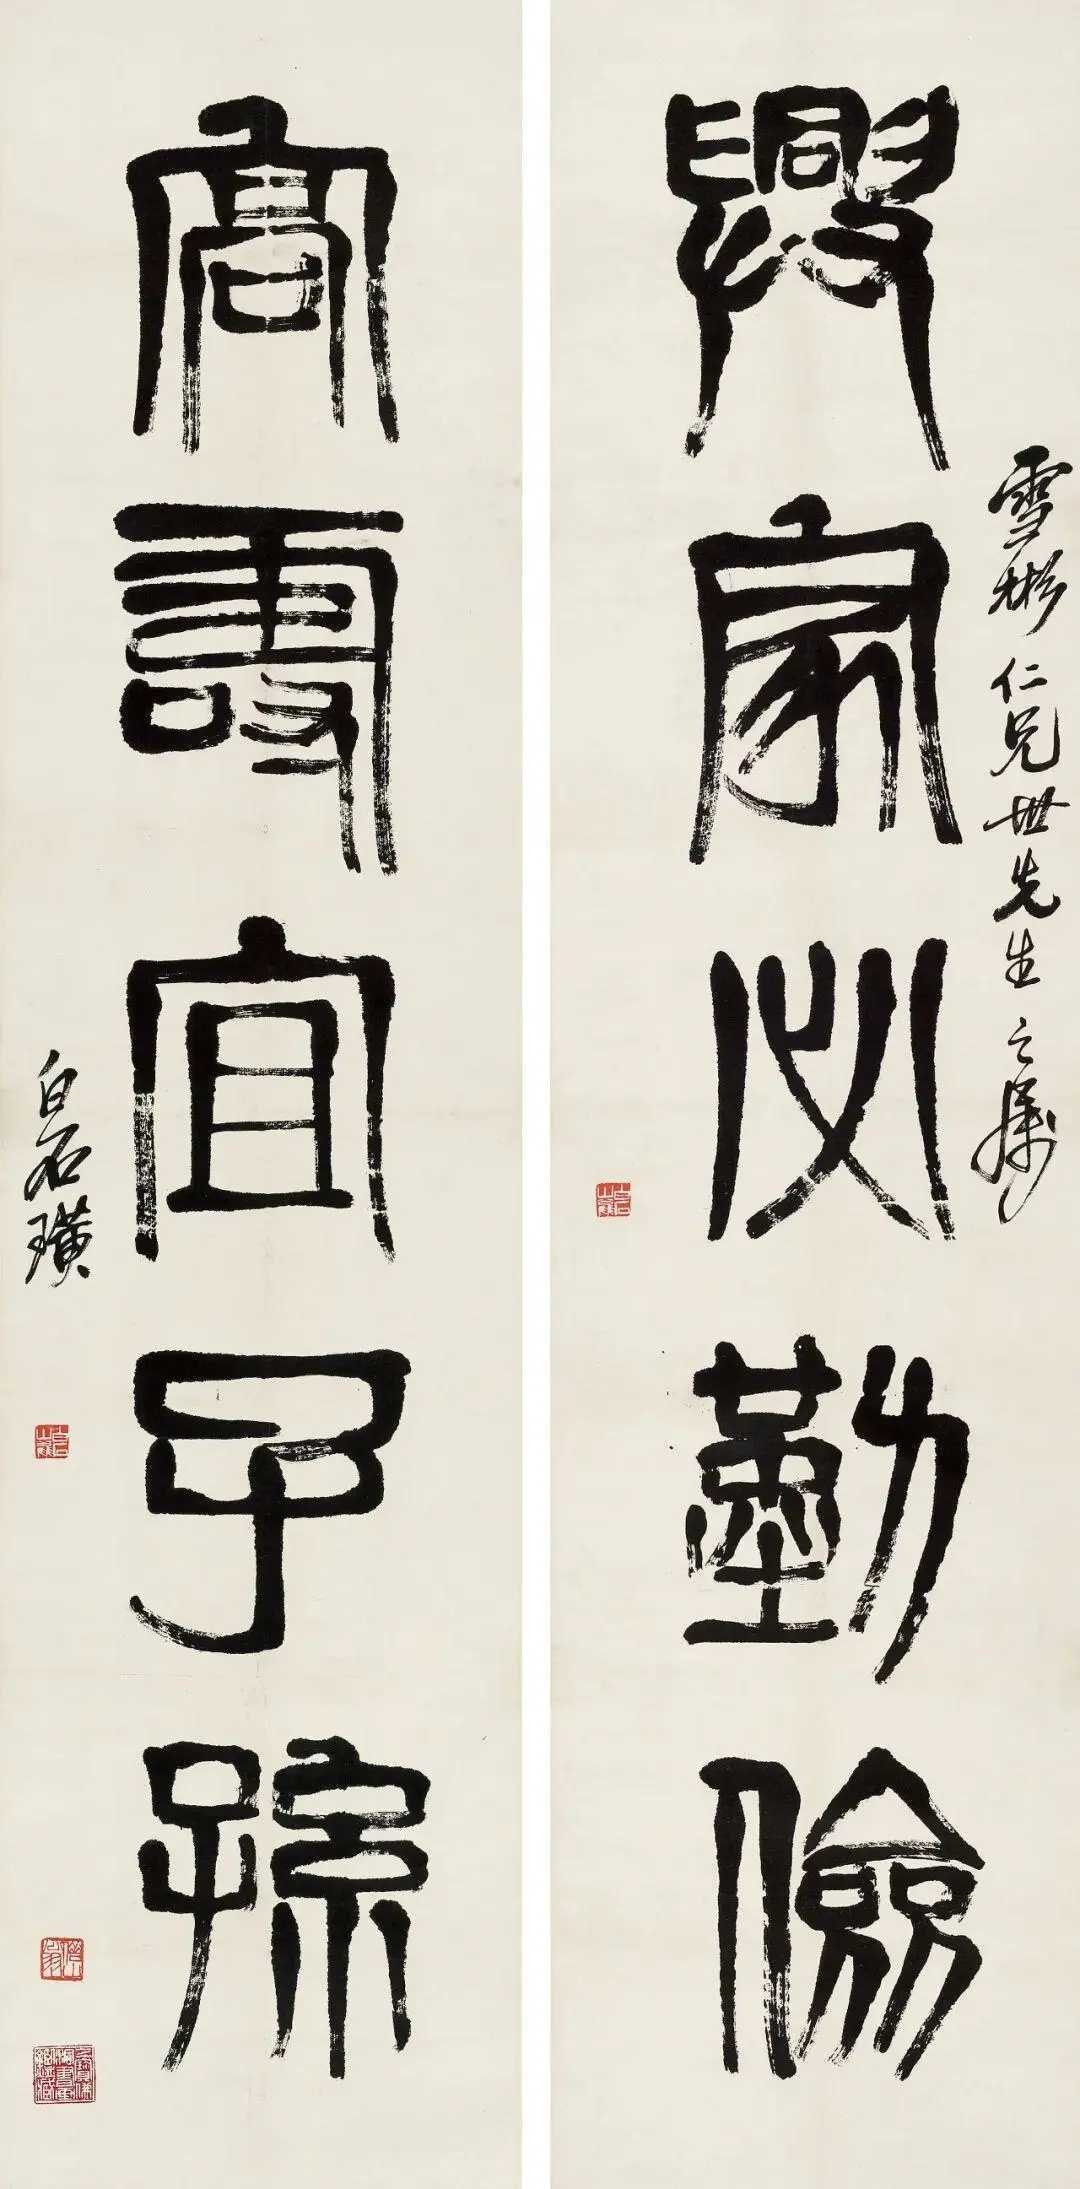 興家必勤儉
雪彬仁兄世先生之屬
高壽宜子孫
白石璜